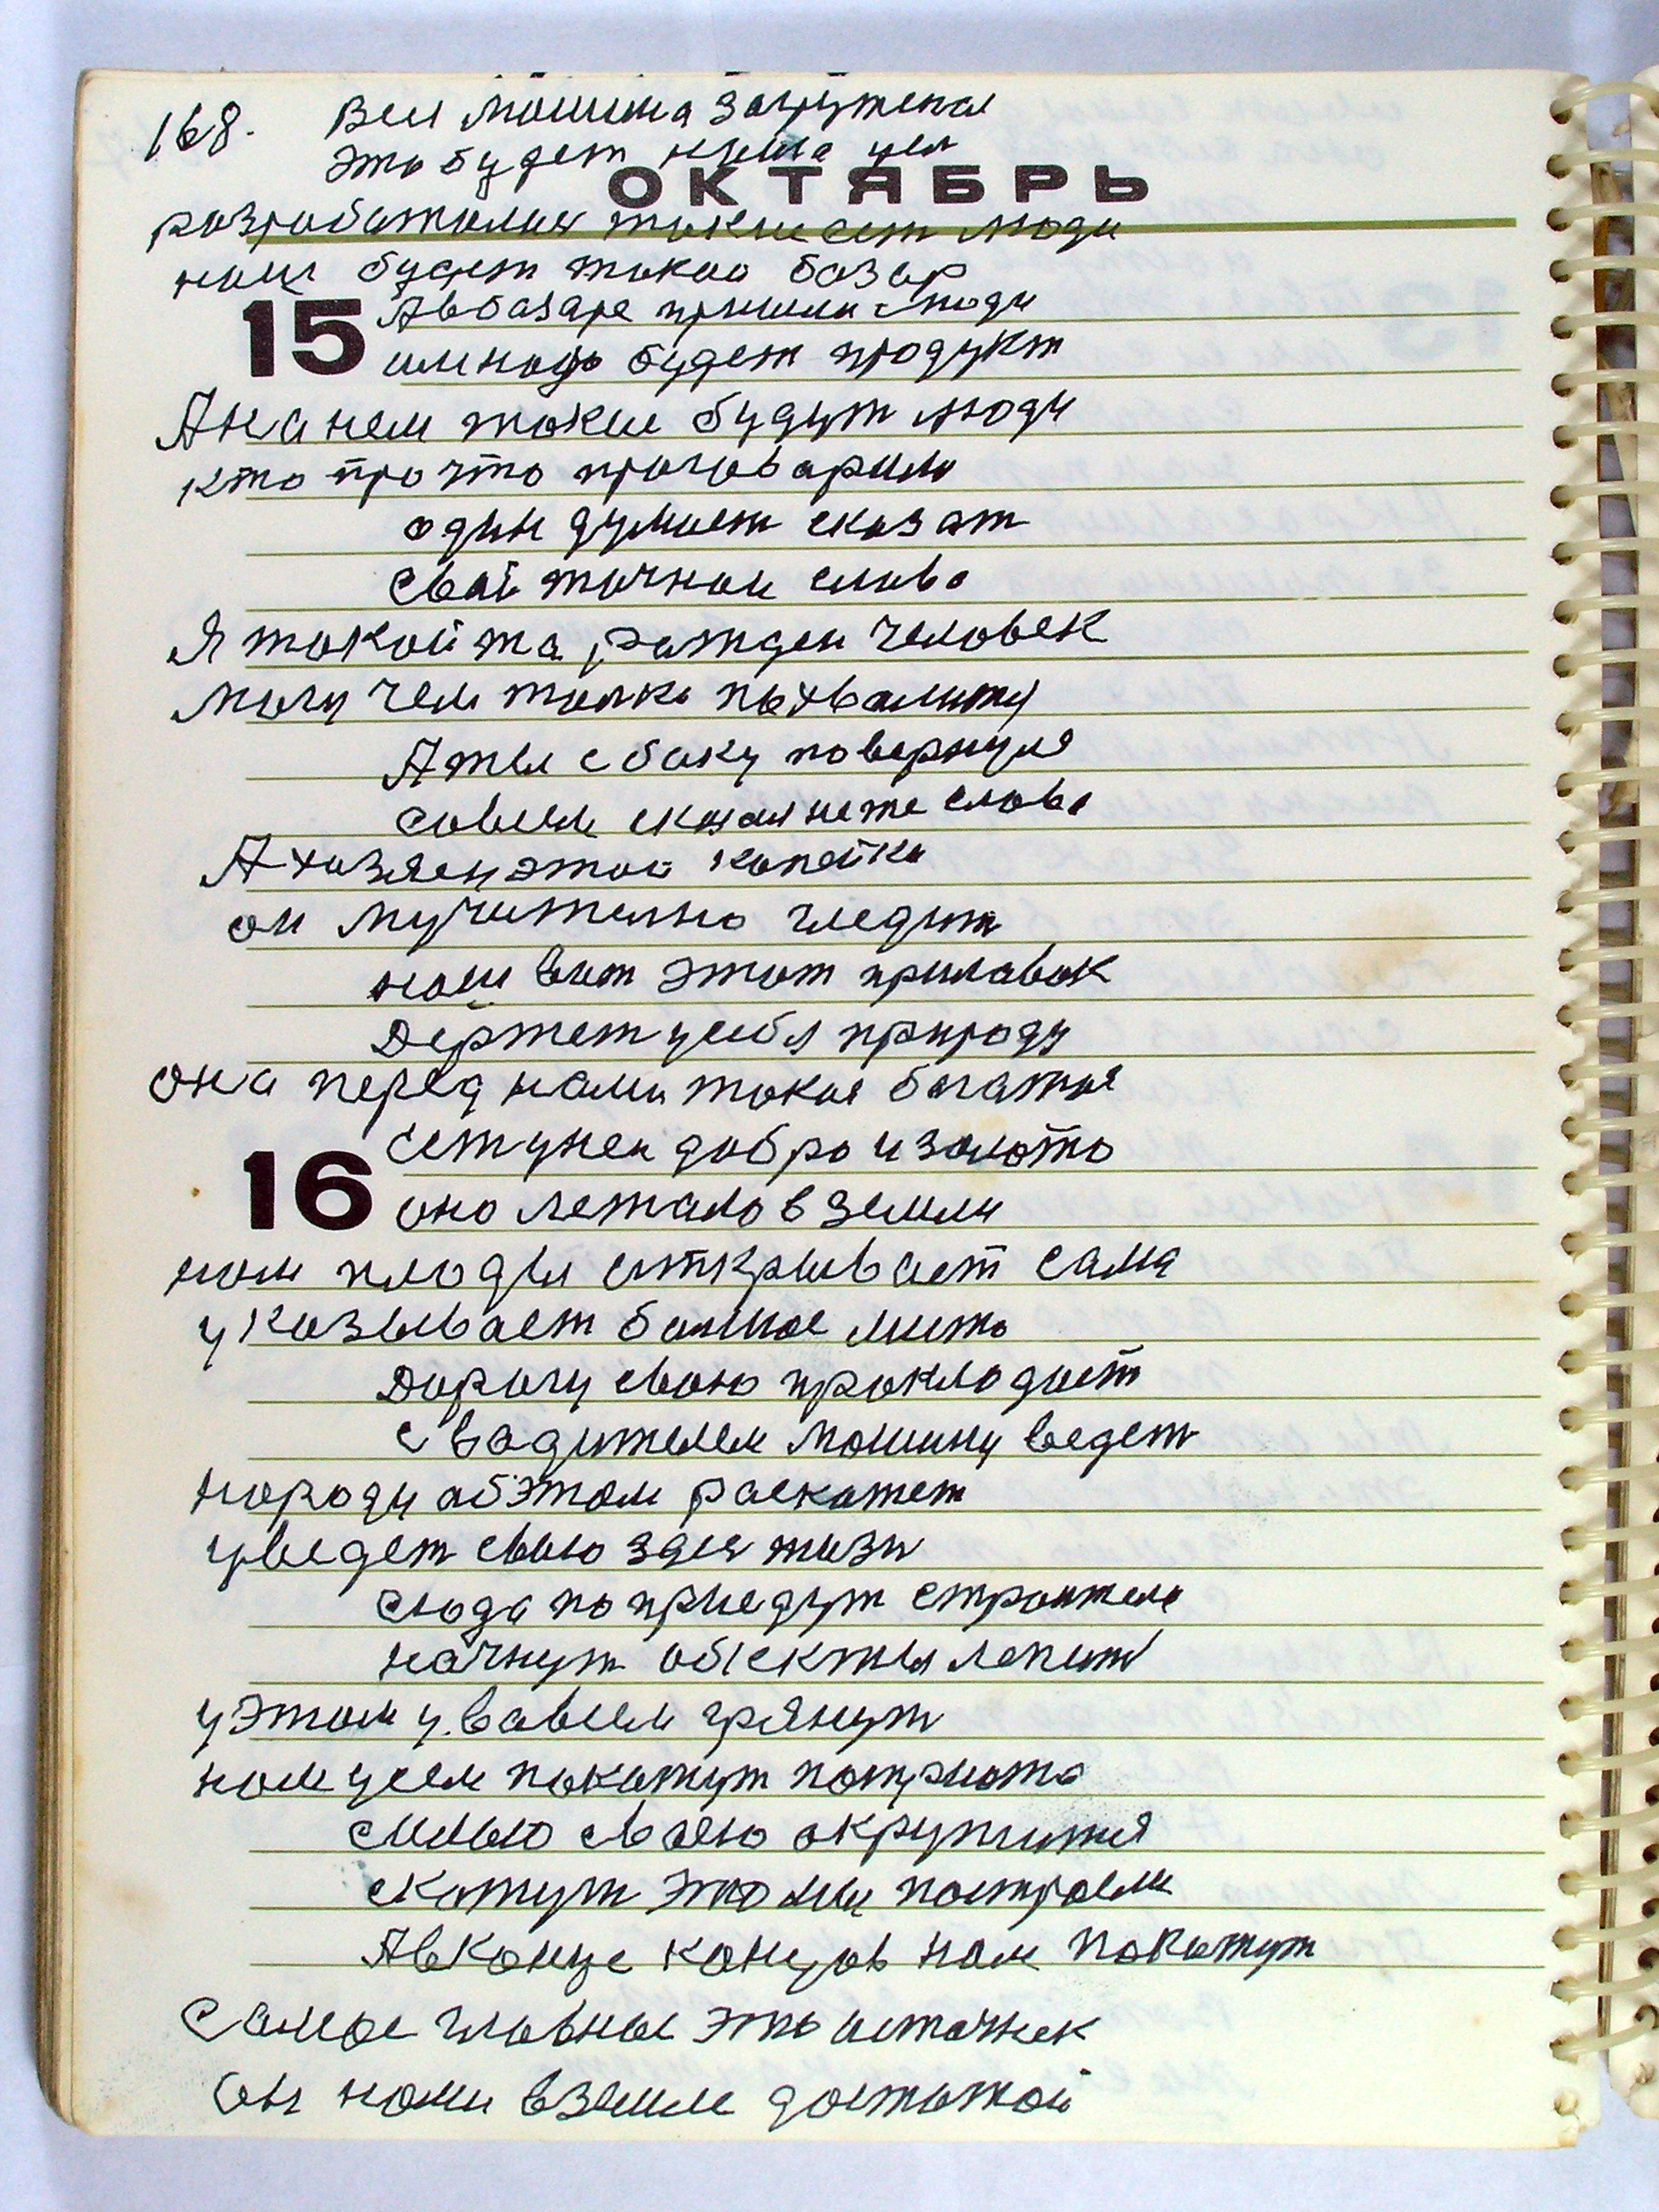 168. Вся машина загружена
это будет наша цел
ОКТЯБРЬ
разрабатолия такие ест люди
наш будет такой базар
15 А в базаре пришли люди
им надо будет продукт
А на нем такие будут люди
кто про что проговарили
один думает сказат
свой точнои слово
Я такой та рожден человек
могу чем толко похвалится
А ты с боку повернулся
совсем сказал не те слова
А хозяен этой копейки
он мучително гледит
наш вот этот прилавок
Держет у себя природу
она перед нами такая багатая
16 Ест у нея добро и золото
оно лежало в земли
нам плоды открывает сама
указывает болшое место
Дорогу свою прокладает
с вадителем машину ведет
народу об этом раскажет
уведет свою здес жизн
сюда по приедут строители
начнут обекты лепить
у этом у. вовсем грянут
нам усем покажут потриота
силою своею окружится
скажут это мы построем
А в конце концов нам покажут
самое главные это источнек
он нами в земле достатой